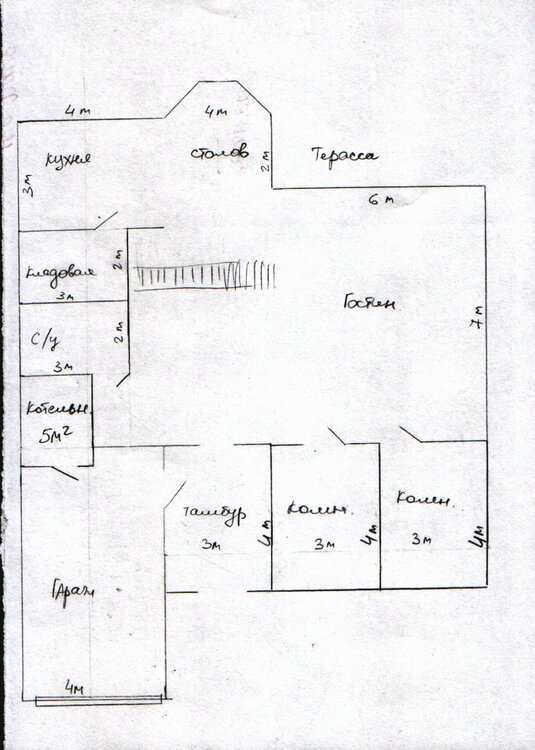 4 м
4 м
кухня
столов
2 м
Терасса
3 м
6 м
Кладовая
2 м
3м
Гостин
7 м
С/у
2 м
3м
Котельн.
5м²
тамбур
3м
4 м
комн.
3м
4м
комн.
3м
4м
гараж
4м